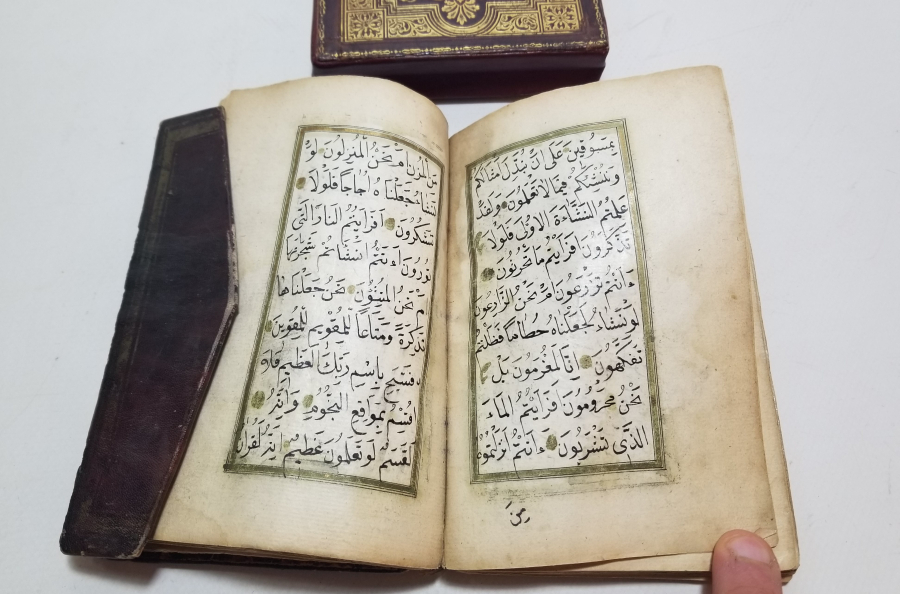 بِمَسْبُوقِينَ عَلَى اَنْ نُبَدِّلَ اَمْثَالَكُمْ
وَنُنْشِئَكُمْ فِيمَا لَا تَعْلَمُونَ وَلَقَدْ
عَلِمْتُمُ النَّشْاَةَ الْاُولَى فَلَوْلَا
تَذَكَّرُونَ اَفَرَاَيْتُمْ مَا تَحْرُثُونَ
ءَاَنْتُمْ تَزْرَعُونَهُ اَمْ نَحْنُ الزَّارِعُونَ
لَوْ نَشَاءُ لَجَعَلْنَاهُ حُطَامًا فَظَلْتُمْ
تَفَكَّهُونَ اِنَّا لَمُغْرَمُونَ بَلْ
نَحْنُ مَحْرُومُونَ اَفَرَاَيْتُمُ الْمَاءَ
الَّذِى تَشْرَبُونَ ءَاَنْتُمْ اَنْزَلْتُمُوهُ
مِنَ
مِنَ الْمُزْنِ اَمْ نَحْنُ الْمُنْزِلُونَ لَوْ
نَشَاءُ جَعَلْنَاهُ اُجَاجًا فَلَوْلَا
تَشْكُرُونَ اَفَرَاَيْتُمُ النَّارَ الَّتِى
تُورُونَ ءَاَنْتُمْ اَنْشَاْتُمْ شَجَرَتَهَا
اَمْ نَحْنُ الْمُنْشِئُونَ نَحْنُ جَعَلْنَاهَا
تَذْكِرَةً وَمَتَاعًا لِلْمُقْوِيمِ لِلْمُقْوِينَ
فَسَبِّحْ بِاسْمِ رَبِّكَ الْعَظِيمِ فَلَا
اُقْسِمُ بِمَوَاقِعِ النُّجُومِ وَاِنَّهُ
لَقَسَمٌ لَوْ تَعْلَمُونَ عَظِيمٌ اِنَّهُ لَقُرْاٰنٌ